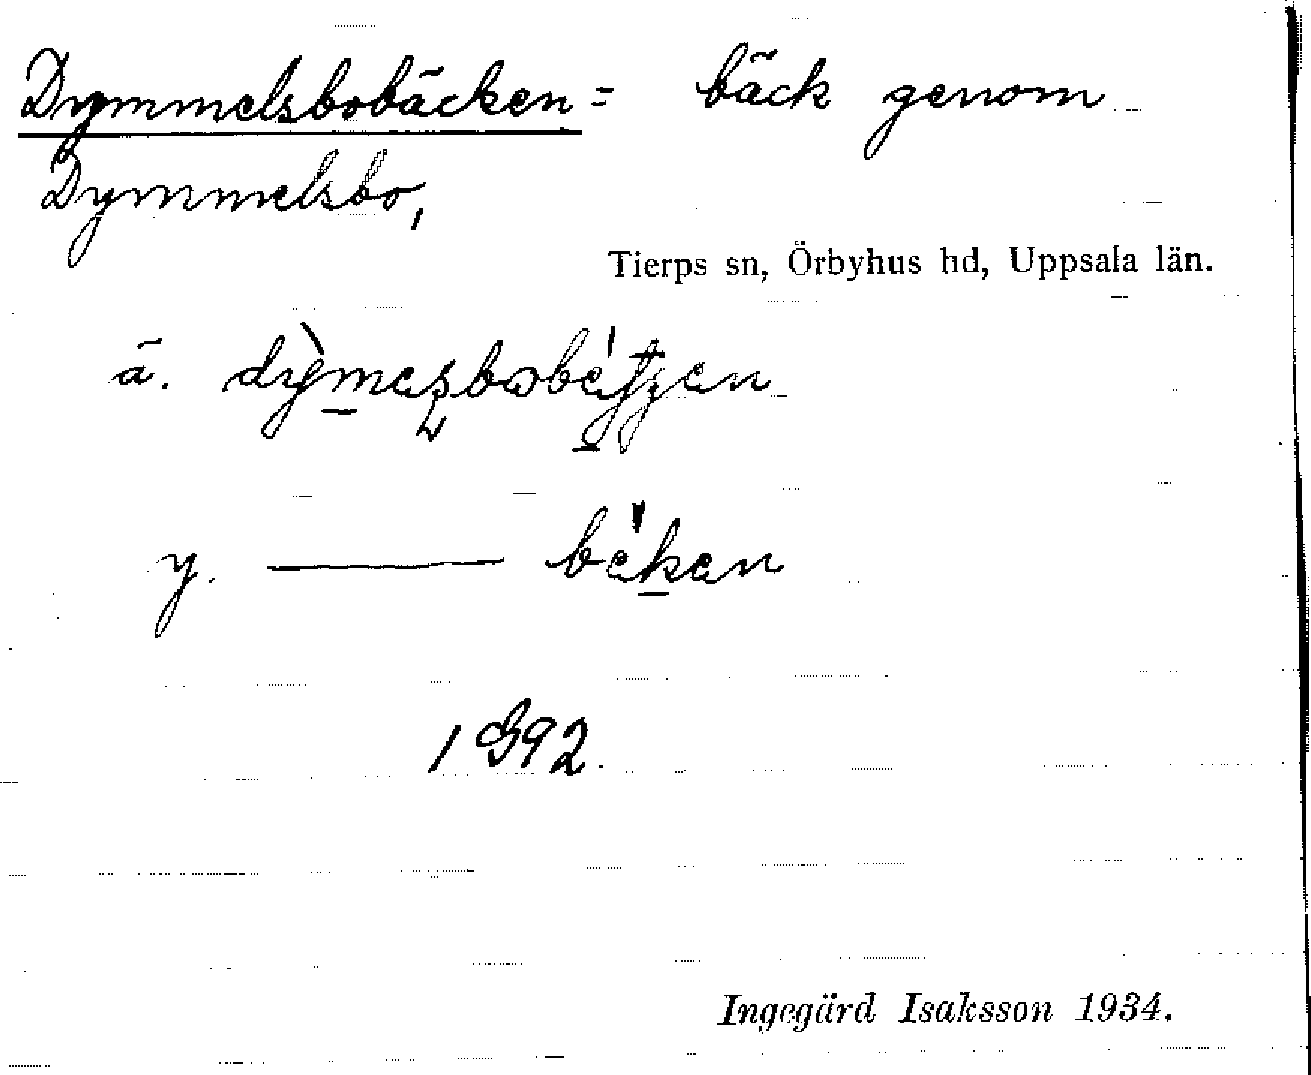 Dymmelsbobäcken = bäck genom
Dymmelsbo,
Tierps sn, Örbyhus hd, Uppsala län.
ä.
y. ——— béken
1992.
Ingegärd Isaksson 1934.